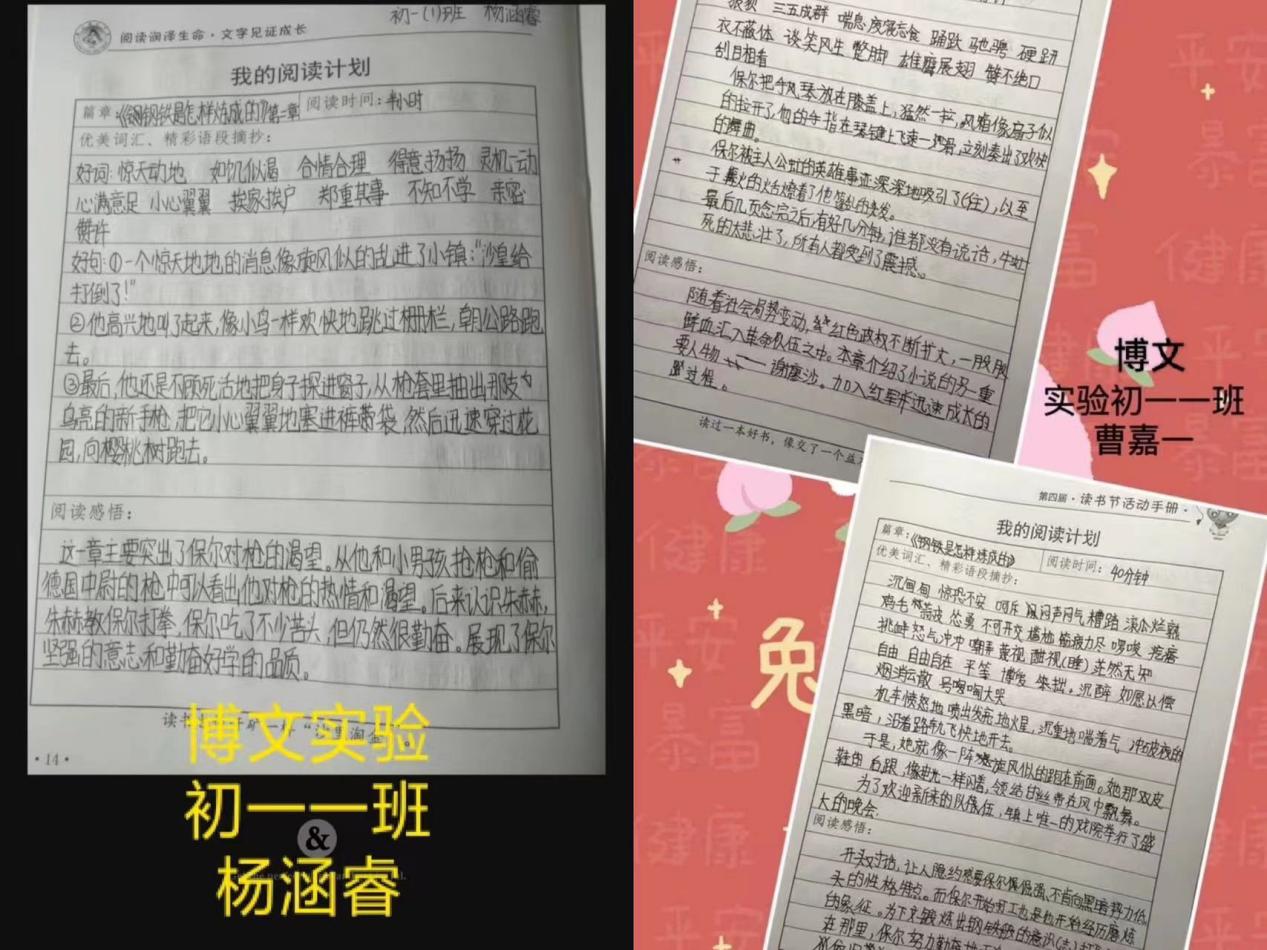 初一(1)班 杨涵睿
阅读润泽生命·文字见证成长
我的阅读计划
篇章:《钢铁是怎样炼成的》第一章 阅读时间:半小时
优美词汇、精彩语段摘抄:
好词:惊天动地 如饥似渴 合情合理 得意扬扬 灵机一动
心满意足 小心翼翼 挨家挨户 郑重其事 不知不学 亲密
赞许
好句:①一个惊天地地的消息像旋风似的乱进了小镇:"沙皇给
打倒了!"
②他高兴地叫了起来,像小鸟一样欢快地跳过栅栏,朝公路跑
去。
③最后,他还是不顾死活地把身子探进窗子,从枪套里抽出那支
乌亮的新手枪,把它小心翼翼地塞进裤袋,然后迅速穿过花
园,向樱桃树跑去。
阅读感悟:
这一章主要突出了保尔对枪的渴望。从他和小男孩抢枪和偷
德国中尉的枪中可以看出他对枪的热情和渴望。后来认识朱赫,
朱赫教保尔打拳,保尔吃了不少苦头,但仍然很勤奋。展现了保尔
坚强的意志和勤奋好学的品质。
·14·
博文实验
初一一班
&
杨涵睿
狼狈 三五成群 喘息 废寝忘食 踊跃 驰骋 硬趼
衣不蔽体 谈笑风生 蹩脚 雄鹰展翅 赞不绝口
刮目相看
保尔把手风琴放在膝盖上,猛然一拉,风箱像扇子似
的拉开了,他的手指在琴键上飞速一滑,立刻奏出了欢快
的舞曲。
保尔被主人公的英雄事迹深深地吸引了(住),以至
于篝火的
最后几页念完之后,有好几分钟,谁都没有说话,牛虻
死的太悲壮了,所有人都受到了震撼。
阅读感悟:
随着社会局势变动,红色政权不断扩大,一股股
鲜血汇入革命队伍之中。本章介绍了小说的另一重
要人物——谢廖沙。加入红军才迅速成长的
过程。
读过一本好书,像交了一个益
博文
实验初一一班
曹嘉一
兔
第四届·读书节活动手册·
我的阅读计划
篇章:《钢铁是怎样炼成的》 阅读时间:40分钟
优美词汇、精彩语段摘抄:
沉甸甸 惊恐不安 呵斥 闷声闷气 糟蹋 滚瓜烂熟
鸡毛蒜皮 怂恿 不可开交 尴尬 筋疲力尽 啰唆 疙瘩
挑衅 怒气冲冲 嘲弄 蔑视 酣视(睡) 茫然无知
自由 自由自在 平等 博爱 笨拙。沉醉 如愿以偿
烟消云散 号啕大哭
机车愤怒地喷出发亮地火星,沉重地喘着气,冲破夜的
黑暗,沿着路轨飞快地开去。
于是,她就像一阵旋风似的跑在前面。她那双皮
鞋的后跟,像电光一样闪着,领结的丝带在风中飘舞。
为了欢迎新来的队伍,镇上唯一的戏院举行了盛
大的晚会.
阅读感悟:
开头对话,让人隐约感受保尔倔强、不肯向黑暗势力低
头的性格特点。而保尔开始劳工也是他开始经历磨炼
的象征。为下文锻炼出钢铁般的意识(志)
在那里,保尔努力勤奋地
平安
暴富
健康